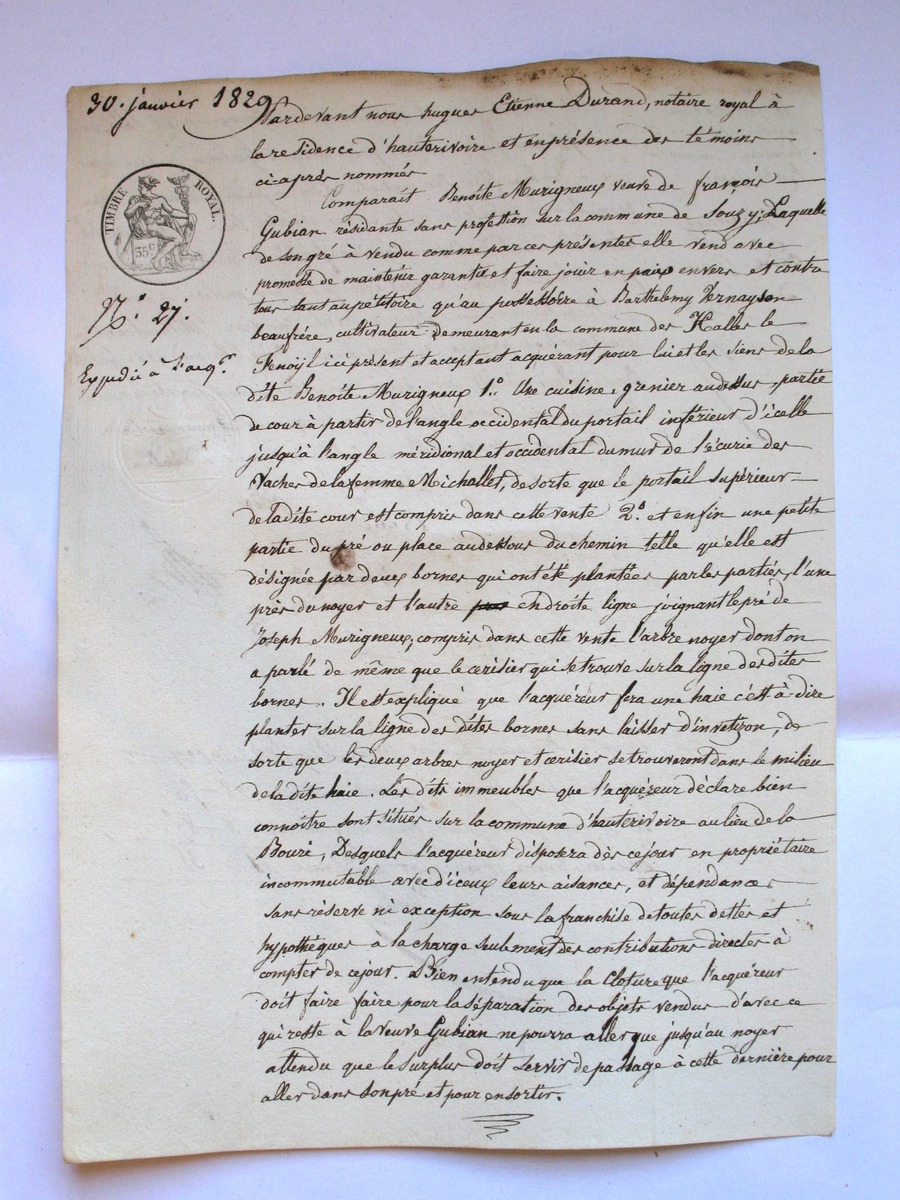 30. janvier 1829
Pardevant nous hugues Etienne Durand, notaire royal à
la residence d'hauterivoire et en présence des témoins
ci-après nommés
TIMBRE ROYAL.
35 c
N.o 27.
Expédié à l'acq.r
Comparait Benoîte Murigneux veuve de françois
Gubian résidante sans profession sur la commune de Souzy, Laquelle
de son gré à vendu comme par ces présentes elle vend avec
promesse de maintenir garantir et faire jouir en paix envers et contre
tous tant au pétitoire qu'au possessoire à Barthelemy Vernay son
beaufrére, cultivateur demeurant en la commune des Halles le
Fenoÿl ici présent et acceptant acquérant pour lui et les siens de la
dite Benoîte Murigneux 1.o Une cuisine, grenier audessus, partie
de cour à partir de l'angle occidental du portail inférieur d'icelle
jusqu'à l'angle méridional et occidental du mur de l'écurie des
Vaches de la femme Michallet, de sorte que le portail supérieur
de la dite cour est compris dans cette vente 2.o et enfin une petite
partie du pré ou place audessous du chemin telle qu'elle est
désignée par deux bornes qui ont été plantées par les parties, l'une
près du noyer et l'autre en droite ligne joignant le pré de
Joseph Murigneux; compris dans cette vente l'arbre noyer dont on
a parlé de même que le cerisier qui se trouve sur la ligne des dites
bornes. Il est expliqué que l'acquéreur fera une haie c'est-à-dire
planter sur la ligne des dites bornes sans laisser d'invetizon, de
sorte que les deux arbres noyer et cerisier se trouveront dans le milieu
de la dite haie. Les dits immeubles que l'acquéreur déclare bien
connoître sont situés sur la commune d'hauterivoire au lieu de la
Bouri, Desquels l'acquéreur disposera dès ce jour en propriétaire
incommutable avec d'iceux leurs aisances, et dépendances
sans réserve ni exception sous la franchise de toutes dettes et
hypothèques a la charge seulement des contributions directes à
compter de ce jour. Bien entendu que la Cloture que l'acquéreur
doit faire faire pour la séparation des objets vendus d'avec ce
qui reste à la veuve Gubian ne pourra aller que jusqu'au noyer
attendu que le surplus doit servir de passage à cette dernière pour
aller dans son pré et pour en sortir.